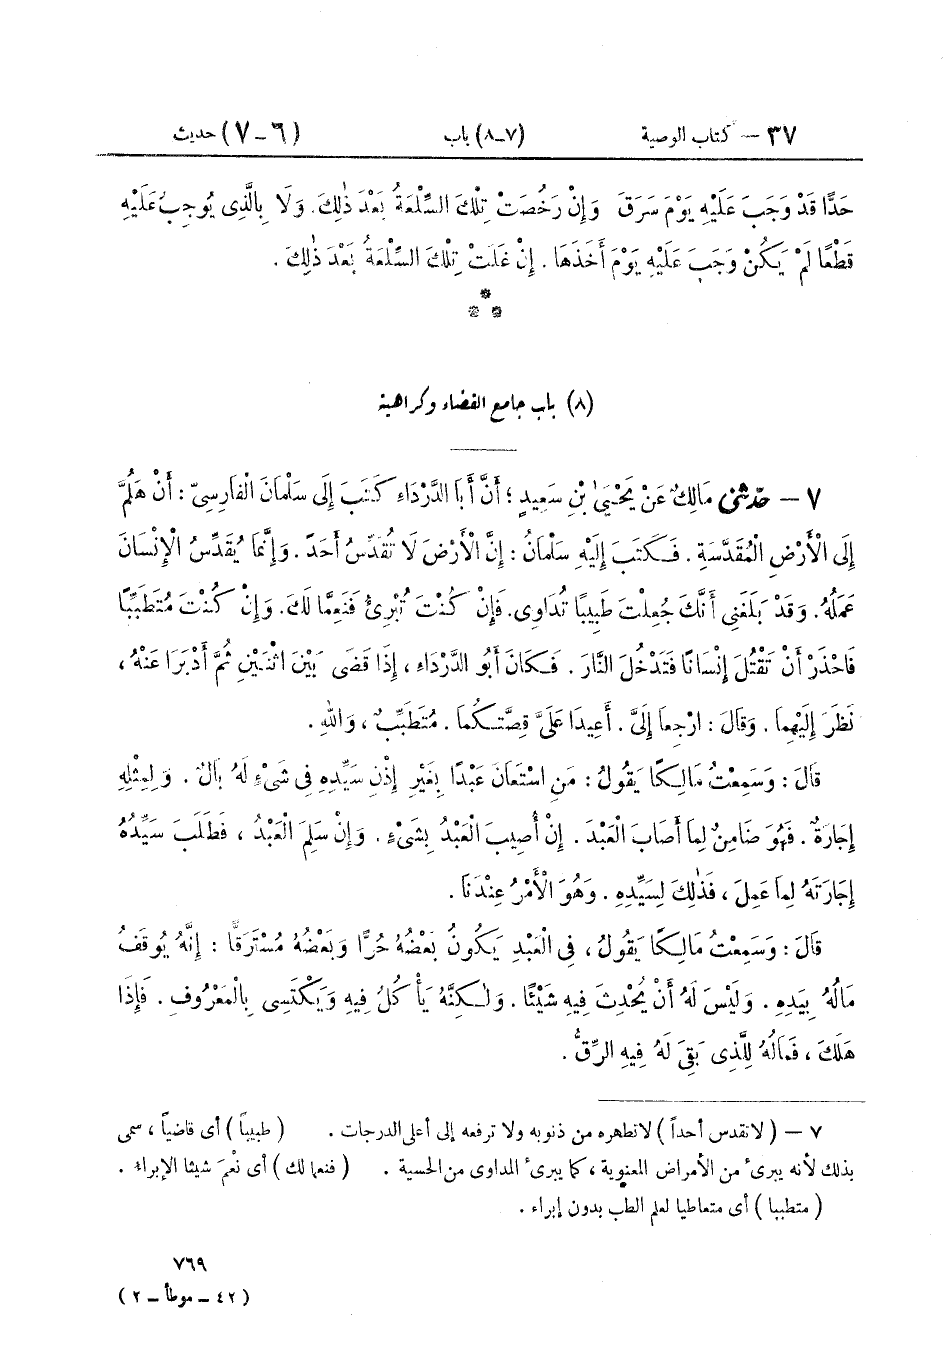 ٣٧ — كتاب الوصية (٧_٨) باب (٦_٧) حديث
حَدًّا قَدْ وَجَبَ عَلَيْهِ يَوْمَ سَرَقَ وَإِنْ رَخُصَتْ تِلْكَ السِّلْعَةُ بَعْدَ ذٰلِكَ. وَلَا بِالَّذِى يُوجِبُ عَلَيْهِ
قَطْعًا لَمْ يَكُنْ وَجَبَ عَلَيْهِ يَوْمَ أَخَذَهَا . إِنْ غَلَتْ تِلْكَ السِّلْعَةُ بَعْدَ ذٰلِكَ .
(٨) باب جامع القضاء وكراهية
٧ — حدّثنى مَالِكٌ عَنْ يَحْيَىٰ بْنِ سَعِيدٍ ؛ أَنَّ أَبَا الدَّرْدَاءِ كَتَبَ إِلَى سَلْمَانَ الْفَارِسِىِّ : أَنْ هَلُمَّ
إِلَى الْأَرْضِ الْمُقَدَّسَةِ . فَكَتَبَ إِلَيْهِ سَلْمَانُ : إِنَّ الْأَرْضَ لَا تُقَدِّسُ أَحَدًا . وَإِنَّمَا يُقَدِّسُ الْإِنْسَانَ
عَمَلُهُ . وَقَدْ بَلَغَنِى أَنَّكَ جُعِلْتَ طَبِيبًا تُدَاوِى. فَإِنْ كُنْتَ تُبْرِئُ فَنَعِمَّا لَكَ. وَإِنْ كُنْتَ مُتَطَبِّبًا
فَاحْذَرْ أَنْ تَقْتُلَ إِنْسَانًا فَتَدْخُلَ النَّارَ . فَكَانَ أَبُو الدَّرْدَاءِ ، إِذَا قَضَى بَيْنَ اثْنَيْنِ ثُمَّ أَدْبَرَا عَنْهُ ،
نَظَرَ إِلَيْهِمَا . وَقَالَ : ارْجِعَا إِلَىَّ . أَعِيدَا عَلَىَّ قِصَّتَكُمَا . مُتَطَبِّبٌ ، وَاللهِ .
قَالَ : وَسَمِعْتُ مَالِكًا يَقُولُ : مَنِ اسْتَعَانَ عَبْدًا بِغَيْرِ إِذْنِ سَيِّدِهِ فِى شَىْءٍ لَهُ بَالٌ . وَلِمِثْلِهِ
إِجَارَةٌ . فَهُوَ ضَامِنٌ لِمَا أَصَابَ الْعَبْدَ . إِنْ أُصِيبَ الْعَبْدُ بِشَىْءٍ . وَإِنْ سَلِمَ الْعَبْدُ ، فَطَلَبَ سَيِّدُهُ
إِجَارَتَهُ لِمَا عَمِلَ ، فَذٰلِكَ لِسَيِّدِهِ . وَهُوَ الْأَمْرُ عِنْدَنَا .
قَالَ : وَسَمِعْتُ مَالِكًا يَقُولُ ، فِى الْعَبْدِ يَكُونُ بَعْضُهُ حُرًّا وَبَعْضُهُ مُسْتَرَقًّا : إِنَّهُ يُوقَفُ
مَالُهُ بِيَدِهِ . وَلَيْسَ لَهُ أَنْ يُحْدِثَ فِيهِ شَيْئًا . وَلٰكِنَّهُ يَأْكُلُ فِيهِ وَيَكْتَسِى بِالْمَعْرُوفِ . فَإِذَا
هَلَكَ ، فَمَالُهُ لِلَّذِى بَقِىَ لَهُ فِيهِ الرِّقُّ .
٧ — ( لاتقدس أحداً ) لاتطهره من ذنوبه ولا ترفعه إلى أعلى الدرجات . ( طبيباً ) أى قاضياً ، سمى
بذلك لأنه يبرئ من الأمراض المعنوية ، كما يبرئ المداوى من الحسية . ( فنعما لك ) أى نعْمَ شيئا الإبراء .
( متطببا ) أى متعاطيا لعلم الطب بدون إبراء .
٧٦٩
( ٤٢ — موطأ — ٢ )